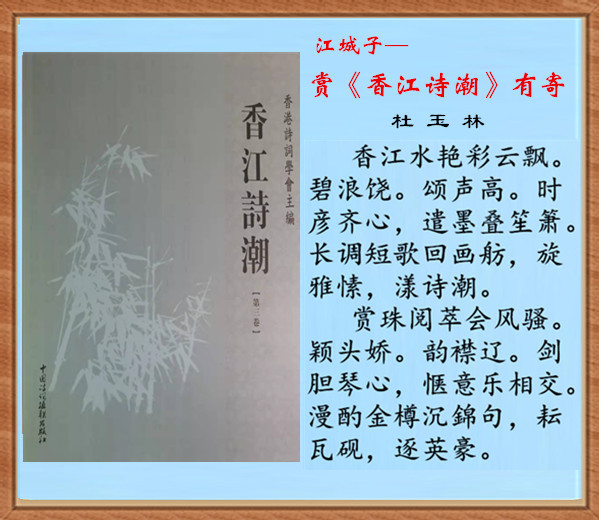 香港詩詞學會主編
香江詩潮
【第三卷】
中国诗词楹联出版社
江城子—
赏《香江诗潮》有寄
杜玉林
香江水艳彩云飘。
碧浪饶。颂声高。时
彦齐心，遣墨叠笙箫。
长调短歌回画舫，旋
雅愫，漾诗潮。
赏珠阅萃会风骚。
颖头娇。韵襟辽。剑
胆琴心，惬意乐相交。
漫酌金樽沉錦句，耘
瓦砚，逐英豪。